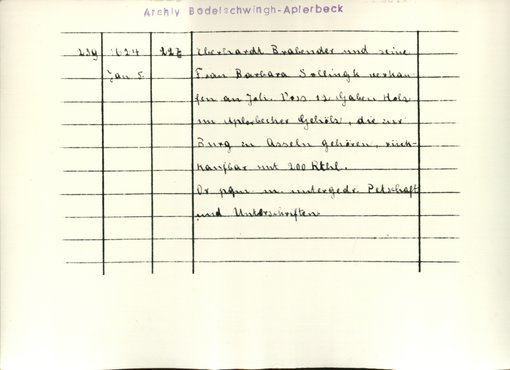 Archiv Bodelschwingh-Aplerbeck
239 1624 227 Eberhardt Brabender und seine
Jan 5. Frau Barbara Sollingk verkau-
fen an Joh. Voss 12 Gaben Holz
im Aplerbecher Gehölz, die zur
Burg zu Asseln gehören, rück-
kaufbar mit 200 Rthl.
Or. pgm. m. untergedr. Petschaft
und Unterschriften